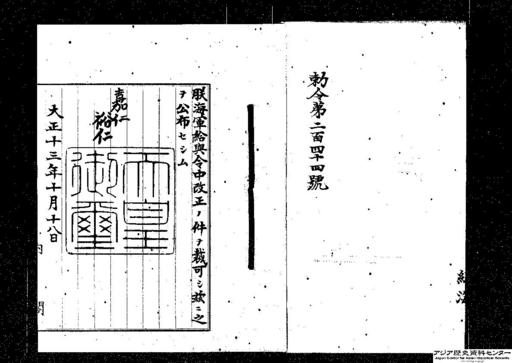 勅令第二百四十四號
朕海軍給與令中改正ノ件ヲ裁可シ茲ニ之
ヲ公布セシム
嘉仁
裕仁
天皇
御璽
大正十三年十月十八日
内閣
アジア歴史資料センター
Japan Center for Asian Historical Records